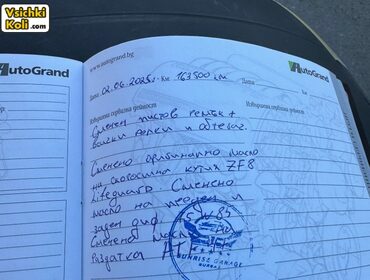 Vsichki
Koli.com
AutoGrand
www.autogrand.bg
AutoGrand
Дата 02.06.2025г. Км 163500 км Дата
Извършена сервизна дейност
Извършена сервизна дейност
Сменен пистов ремък +
всички ролки и обтегач.
Сменено оригинално масло
на скоростна кутия ZF8
Lifeguard Сменено
масло на преден и
заден диф.
Сменено масло
раздатка
SUNRISE GARAGE